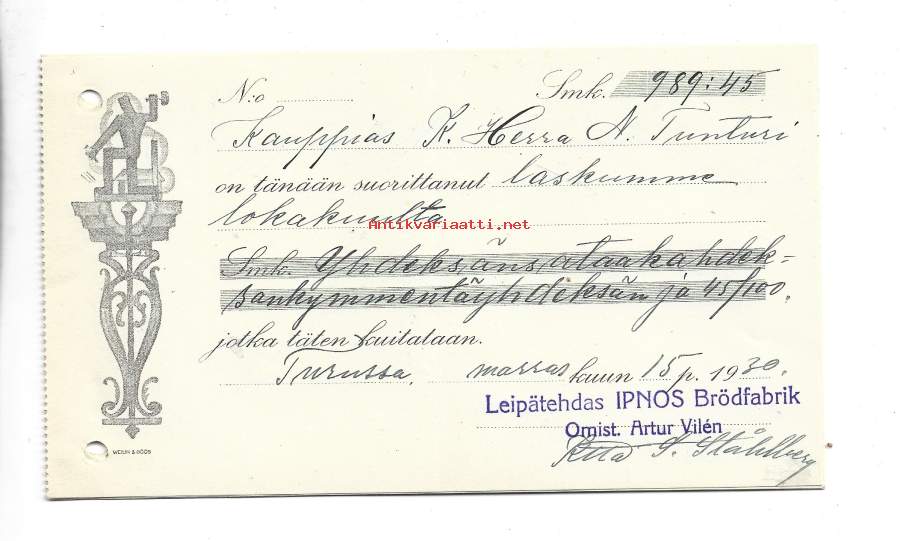 N:o Smk. 989:45
Kauppias K. Herra N. Tunturi
on tänään suorittanut laskumme
lokakuulta
Antikvariaatti.net
Smk. Yhdeksänsataakahdek=
sankymmentäyhdeksän ja 45/100.
jotka täten kuitataan.
Turussa, marraskuun 15 p. 1930.
Leipätehdas IPNOS Brödfabrik
Omist. Artur Vilén
S. Ståhlberg
WEILIN & GÖÖS